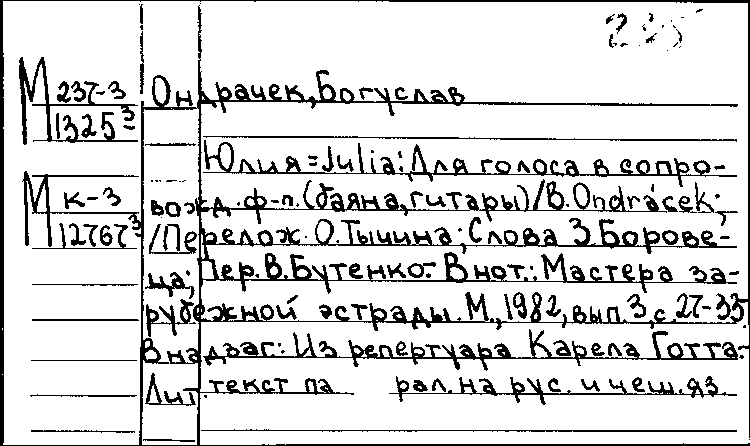 235
М 237-3 Ондрачек, Богуслав
1325-3
Юлия = Julia: Для голоса в сопро-
М к-3 вожд. ф-п. (баяна, гитары) / B. Ondrácek;
12767 3 / Перелож. О. Тычина; Слова З. Борове-
ца; Пер. В. Бутенко.- В нот.: Мастера за-
рубежной эстрады. М., 1982, вып. 3, с. 27-33.
В надзаг.: Из репертуара Карела Готта.-
Лит. текст па рал. на рус. и чеш. яз.